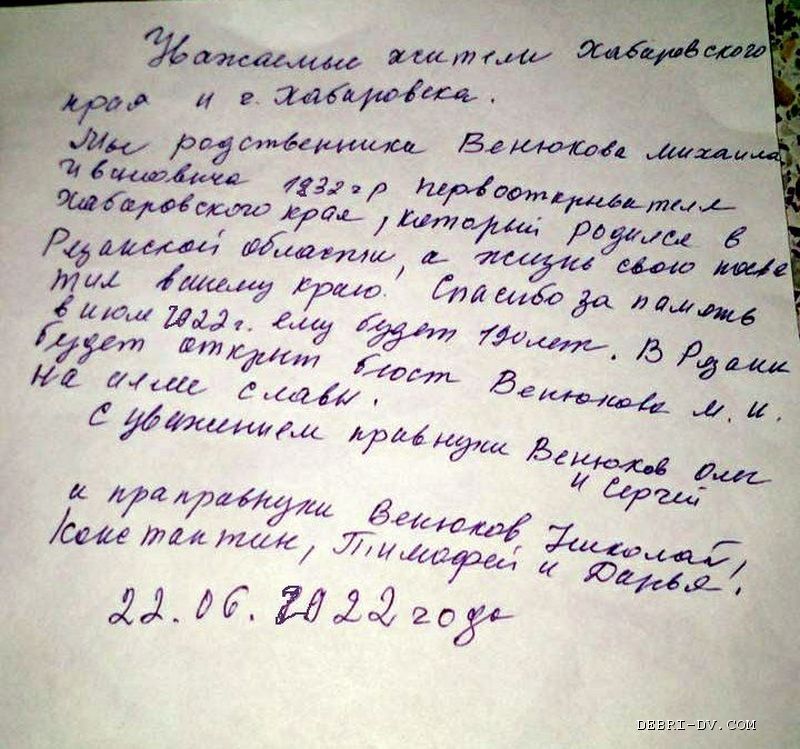 Уважаемые жители Хабаровского
края и г. Хабаровска.
Мы родственники Венюкова Михаила
Ивановича 1832 г р первооткрывателя
Хабаровского края, который родился в
Рязанской области, а жизнь свою посвя
тил вашему краю. Спасибо за память
в июле 2022 г. ему будет 190 лет. В Рязани
будет открыт бюст Венюкова М. И.
на аллее славы.
С уважением правнуки Венюков Олег
и Сергей
и праправнуки Венюков Николай,
Константин, Тимофей и Дарья.
22.06.2022 года
DEBRI-DV.COM